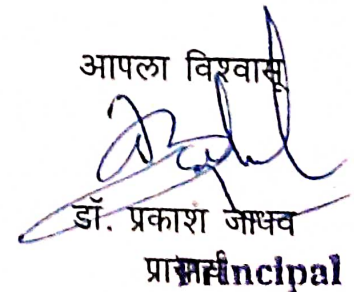 आपला विश्वासू
डॉ. प्रकाश जाधव
Principal